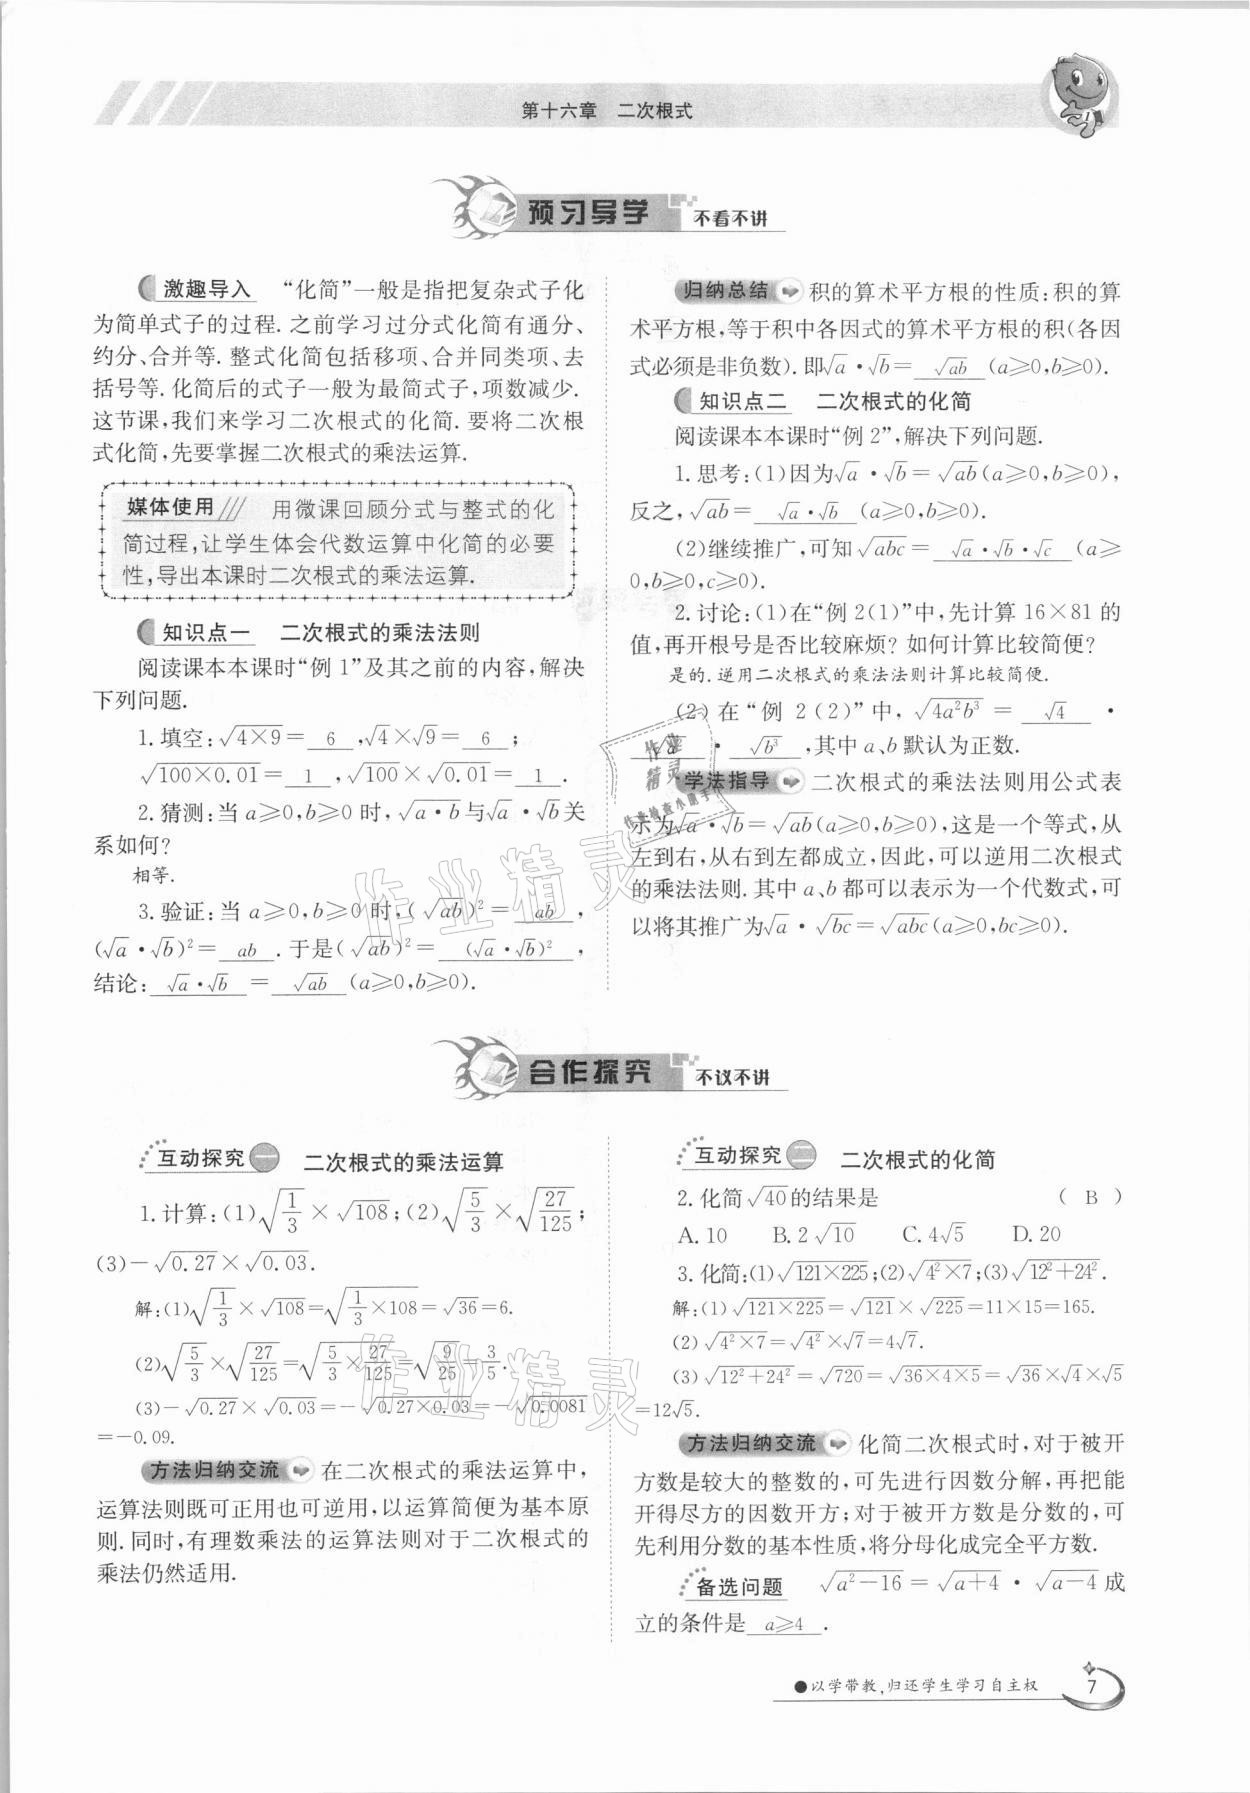 第十六章　二次根式
预习导学 不看不讲
激趣导入　“化简”一般是指把复杂式子化
为简单式子的过程. 之前学习过分式化简有通分、
约分、合并等. 整式化简包括移项、合并同类项、去
括号等. 化简后的式子一般为最简式子,项数减少.
这节课,我们来学习二次根式的化简. 要将二次根
式化简,先要掌握二次根式的乘法运算.
媒体使用　用微课回顾分式与整式的化
简过程,让学生体会代数运算中化简的必要
性,导出本课时二次根式的乘法运算.
知识点一　二次根式的乘法法则
阅读课本本课时“例 1”及其之前的内容,解决
下列问题.
1. 填空:√(4×9)= 6 ,√4×√9= 6 ;
√(100×0.01)= 1 ,√100×√0.01= 1 .
2. 猜测:当 a≥0,b≥0 时,√(a·b)与√a·√b关
系如何?
相等.
3. 验证:当 a≥0,b≥0 时,(√(ab))²= ab ,
(√a·√b)²= ab .于是(√(ab))²= (√a·√b)² ,
结论: √a·√b = √(ab) (a≥0,b≥0).
归纳总结　积的算术平方根的性质:积的算
术平方根,等于积中各因式的算术平方根的积(各因
式必须是非负数). 即√a·√b= √(ab) (a≥0,b≥0).
知识点二　二次根式的化简
阅读课本本课时“例 2”,解决下列问题.
1. 思考:(1)因为√a·√b=√(ab)(a≥0,b≥0),
反之,√(ab)= √a·√b (a≥0,b≥0).
(2)继续推广,可知√(abc)= √a·√b·√c (a≥
0,b≥0,c≥0).
2. 讨论:(1)在“例 2(1)”中,先计算 16×81 的
值,再开根号是否比较麻烦? 如何计算比较简便?
是的. 逆用二次根式的乘法法则计算比较简便.
(2) 在 “例 2 (2)” 中, √(4a²b³) = √4 ·
a · √(b³) ,其中 a、b 默认为正数.
学法指导　二次根式的乘法法则用公式表
示为√a·√b=√(ab)(a≥0,b≥0),这是一个等式,从
左到右,从右到左都成立,因此,可以逆用二次根式
的乘法法则. 其中 a、b 都可以表示为一个代数式,可
以将其推广为√a·√(bc)=√(abc)(a≥0,bc≥0).
作业精灵
作业检查小助手
作业精灵
合作探究 不议不讲
互动探究一　二次根式的乘法运算
1. 计算:(1)√(1/3)×√108;(2)√(5/3)×√(27/125);
(3)-√0.27×√0.03.
解:(1)√(1/3)×√108=√(1/3×108)=√36=6.
(2)√(5/3)×√(27/125)=√(5/3×27/125)=√(9/25)=3/5.
(3)-√0.27×√0.03=-√(0.27×0.03)=-√0.0081
=-0.09.
方法归纳交流　在二次根式的乘法运算中,
运算法则既可正用也可逆用,以运算简便为基本原
则. 同时,有理数乘法的运算法则对于二次根式的
乘法仍然适用.
互动探究二　二次根式的化简
2. 化简√40的结果是　( B )
A. 10　B. 2√10　C. 4√5　D. 20
3. 化简:(1)√(121×225);(2)√(4²×7);(3)√(12²+24²).
解:(1)√(121×225)=√121×√225=11×15=165.
(2)√(4²×7)=√4²×√7=4√7.
(3)√(12²+24²)=√720=√(36×4×5)=√36×√4×√5
=12√5.
方法归纳交流　化简二次根式时,对于被开
方数是较大的整数的,可先进行因数分解,再把能
开得尽方的因数开方;对于被开方数是分数的,可
先利用分数的基本性质,将分母化成完全平方数.
备选问题　√(a²-16)=√(a+4)·√(a-4)成
立的条件是 a≥4 .
作业精灵
●以学带教,归还学生学习自主权
7